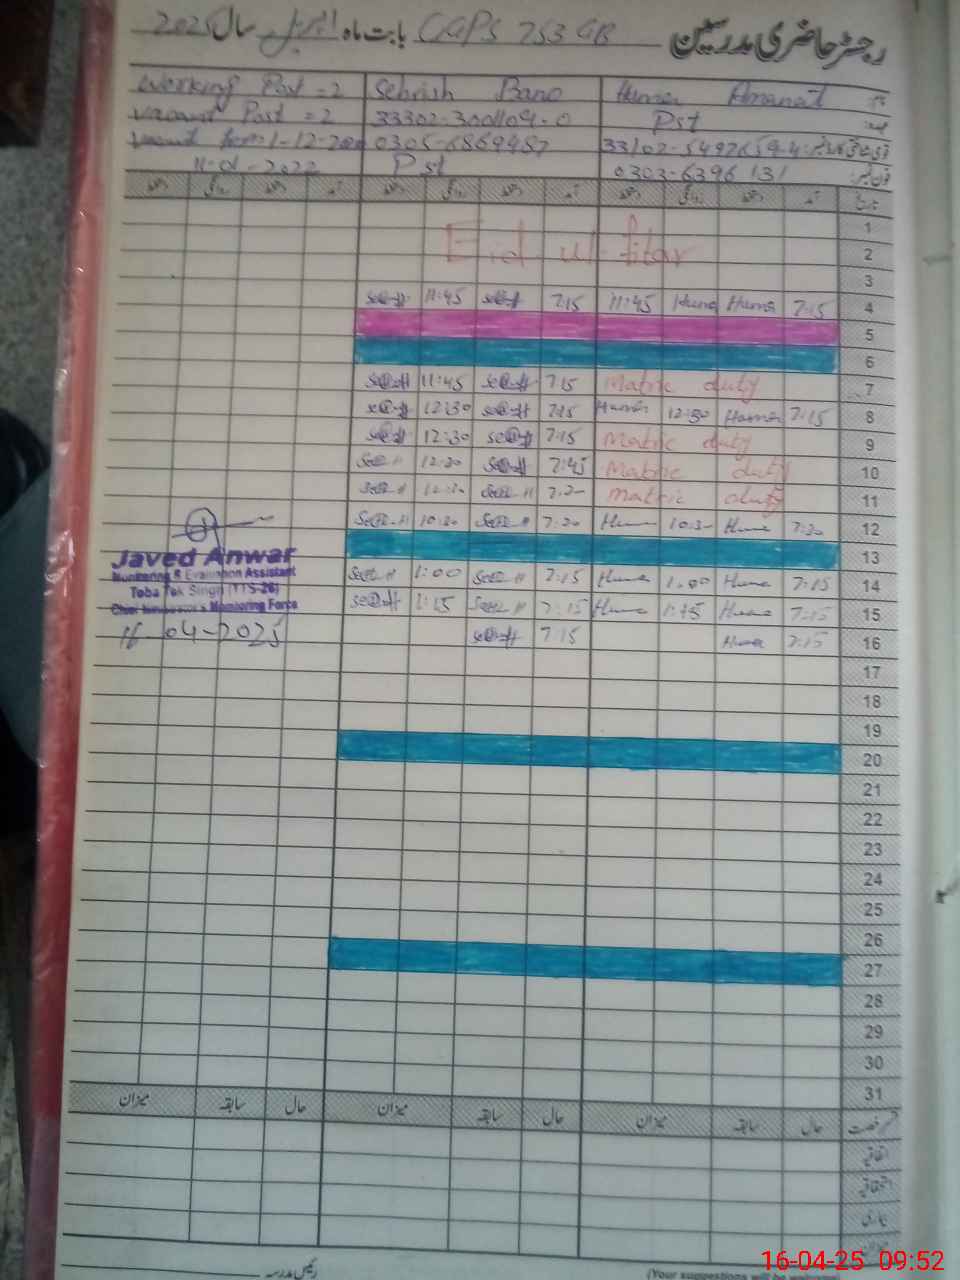 رجسٹر حاضری مدرسین CGPS 753 GB بابت ماہ اپریل سال 2025
Working Post = 2 Sehrish Bano Huma Amanat
vacant Post = 2 33302-3001104-0 Pst
1-12-20 0305-6869487 33102-5492659-4
11-01-2022 Pst 0303-6396131
1
Eid-ul-fitar 2
3
11:45 7:15 11:45 Huma Huma 7:15 4
5
6
11:45 7:15 Matric duty 7
12:30 7:15 Huma 12:30 Huma 7:15 8
12:30 7:15 Matric duty 9
12:30 7:45 Matric duty 10
Matric duty 11
10:30 7:20 Huma 10:30 Huma 7:20 12
13
1:00 7:15 Huma 1:00 Huma 7:15 14
1:15 7:15 Huma 1:15 Huma 7:15 15
7:15 Huma 7:15 16
Javed Anwar
Monitoring & Evaluation Assistant
Toba Tek Singh (TTS-26)
Chief Minister's Monitoring Force
16-04-2025
17
18
19
20
21
22
23
24
25
26
27
28
29
30
31
میزان سابقہ حال میزان سابقہ حال میزان سابقہ حال قسم رخصت
اتفاقیہ
استحقاقیہ
بیماری
میزان
رئیس مدرسہ
(Your suggestions will be
16-04-25 09:52